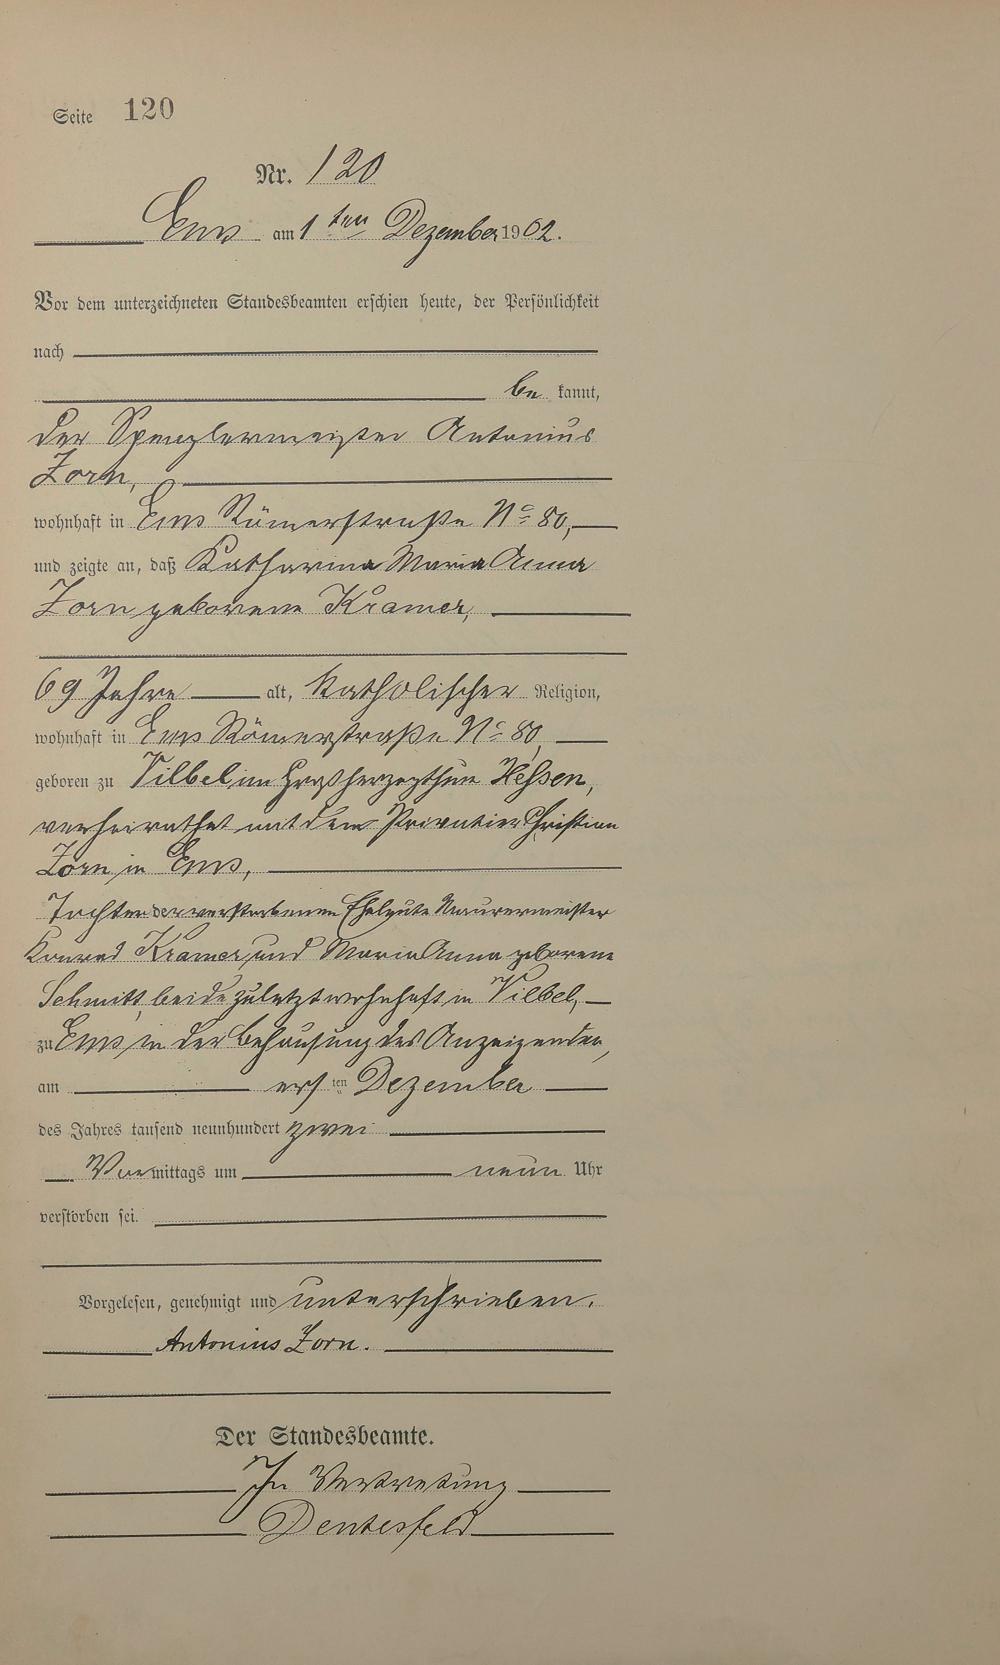 Seite 120
Nr. 120
Ems am 1ten Dezember 1902.
Vor dem unterzeichneten Standesbeamten erschien heute, der Persönlichkeit
nach
be kannt,
der Spenglermeister Antonius
Zorn,
wohnhaft in Ems Römerstraße No 80,
und zeigte an, daß Katharina Maria Anna
Zorn geborene Kramer,
69 Jahre alt, katholischer Religion,
wohnhaft in Ems Römerstraße No 80,
geboren zu Vilbel im Großherzogthum Hessen,
verheirathet mit dem Privatier Christian
Zorn in Ems,
Tochter der verstorbenen Eheleute Maurermeister
Konrad Kramer und Maria Anna geborene
Schmitt, beide zuletzt wohnhaft in Vilbel,
zu Ems in der Behausung des Anzeigenden,
am ersten Dezember
des Jahres tausend neunhundert zwei
Vormittags um neun Uhr
verstorben sei.
Vorgelesen, genehmigt und unterschrieben.
Antonius Zorn.
Der Standesbeamte.
In Vertretung